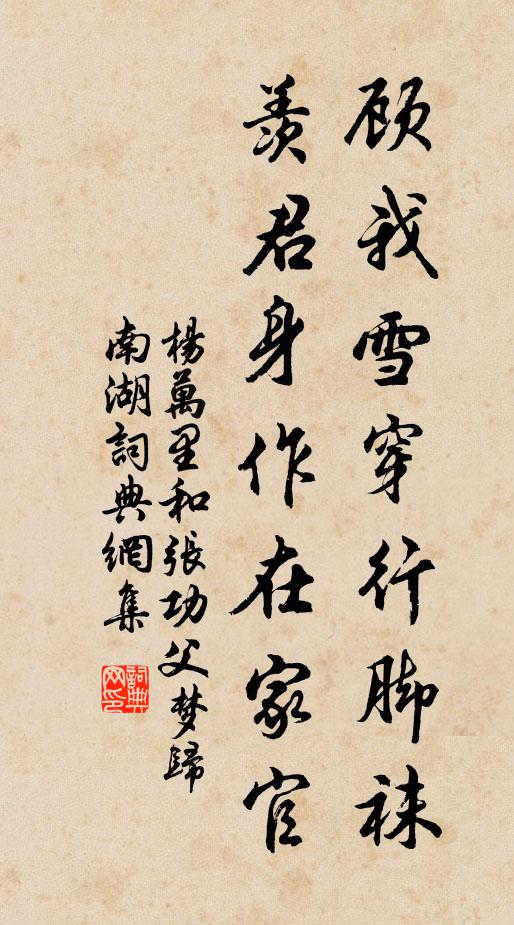 顾我雪穿行脚袜
羡君身作在家官
杨萬里和張功父梦歸
南湖詞典網集
詞典网印